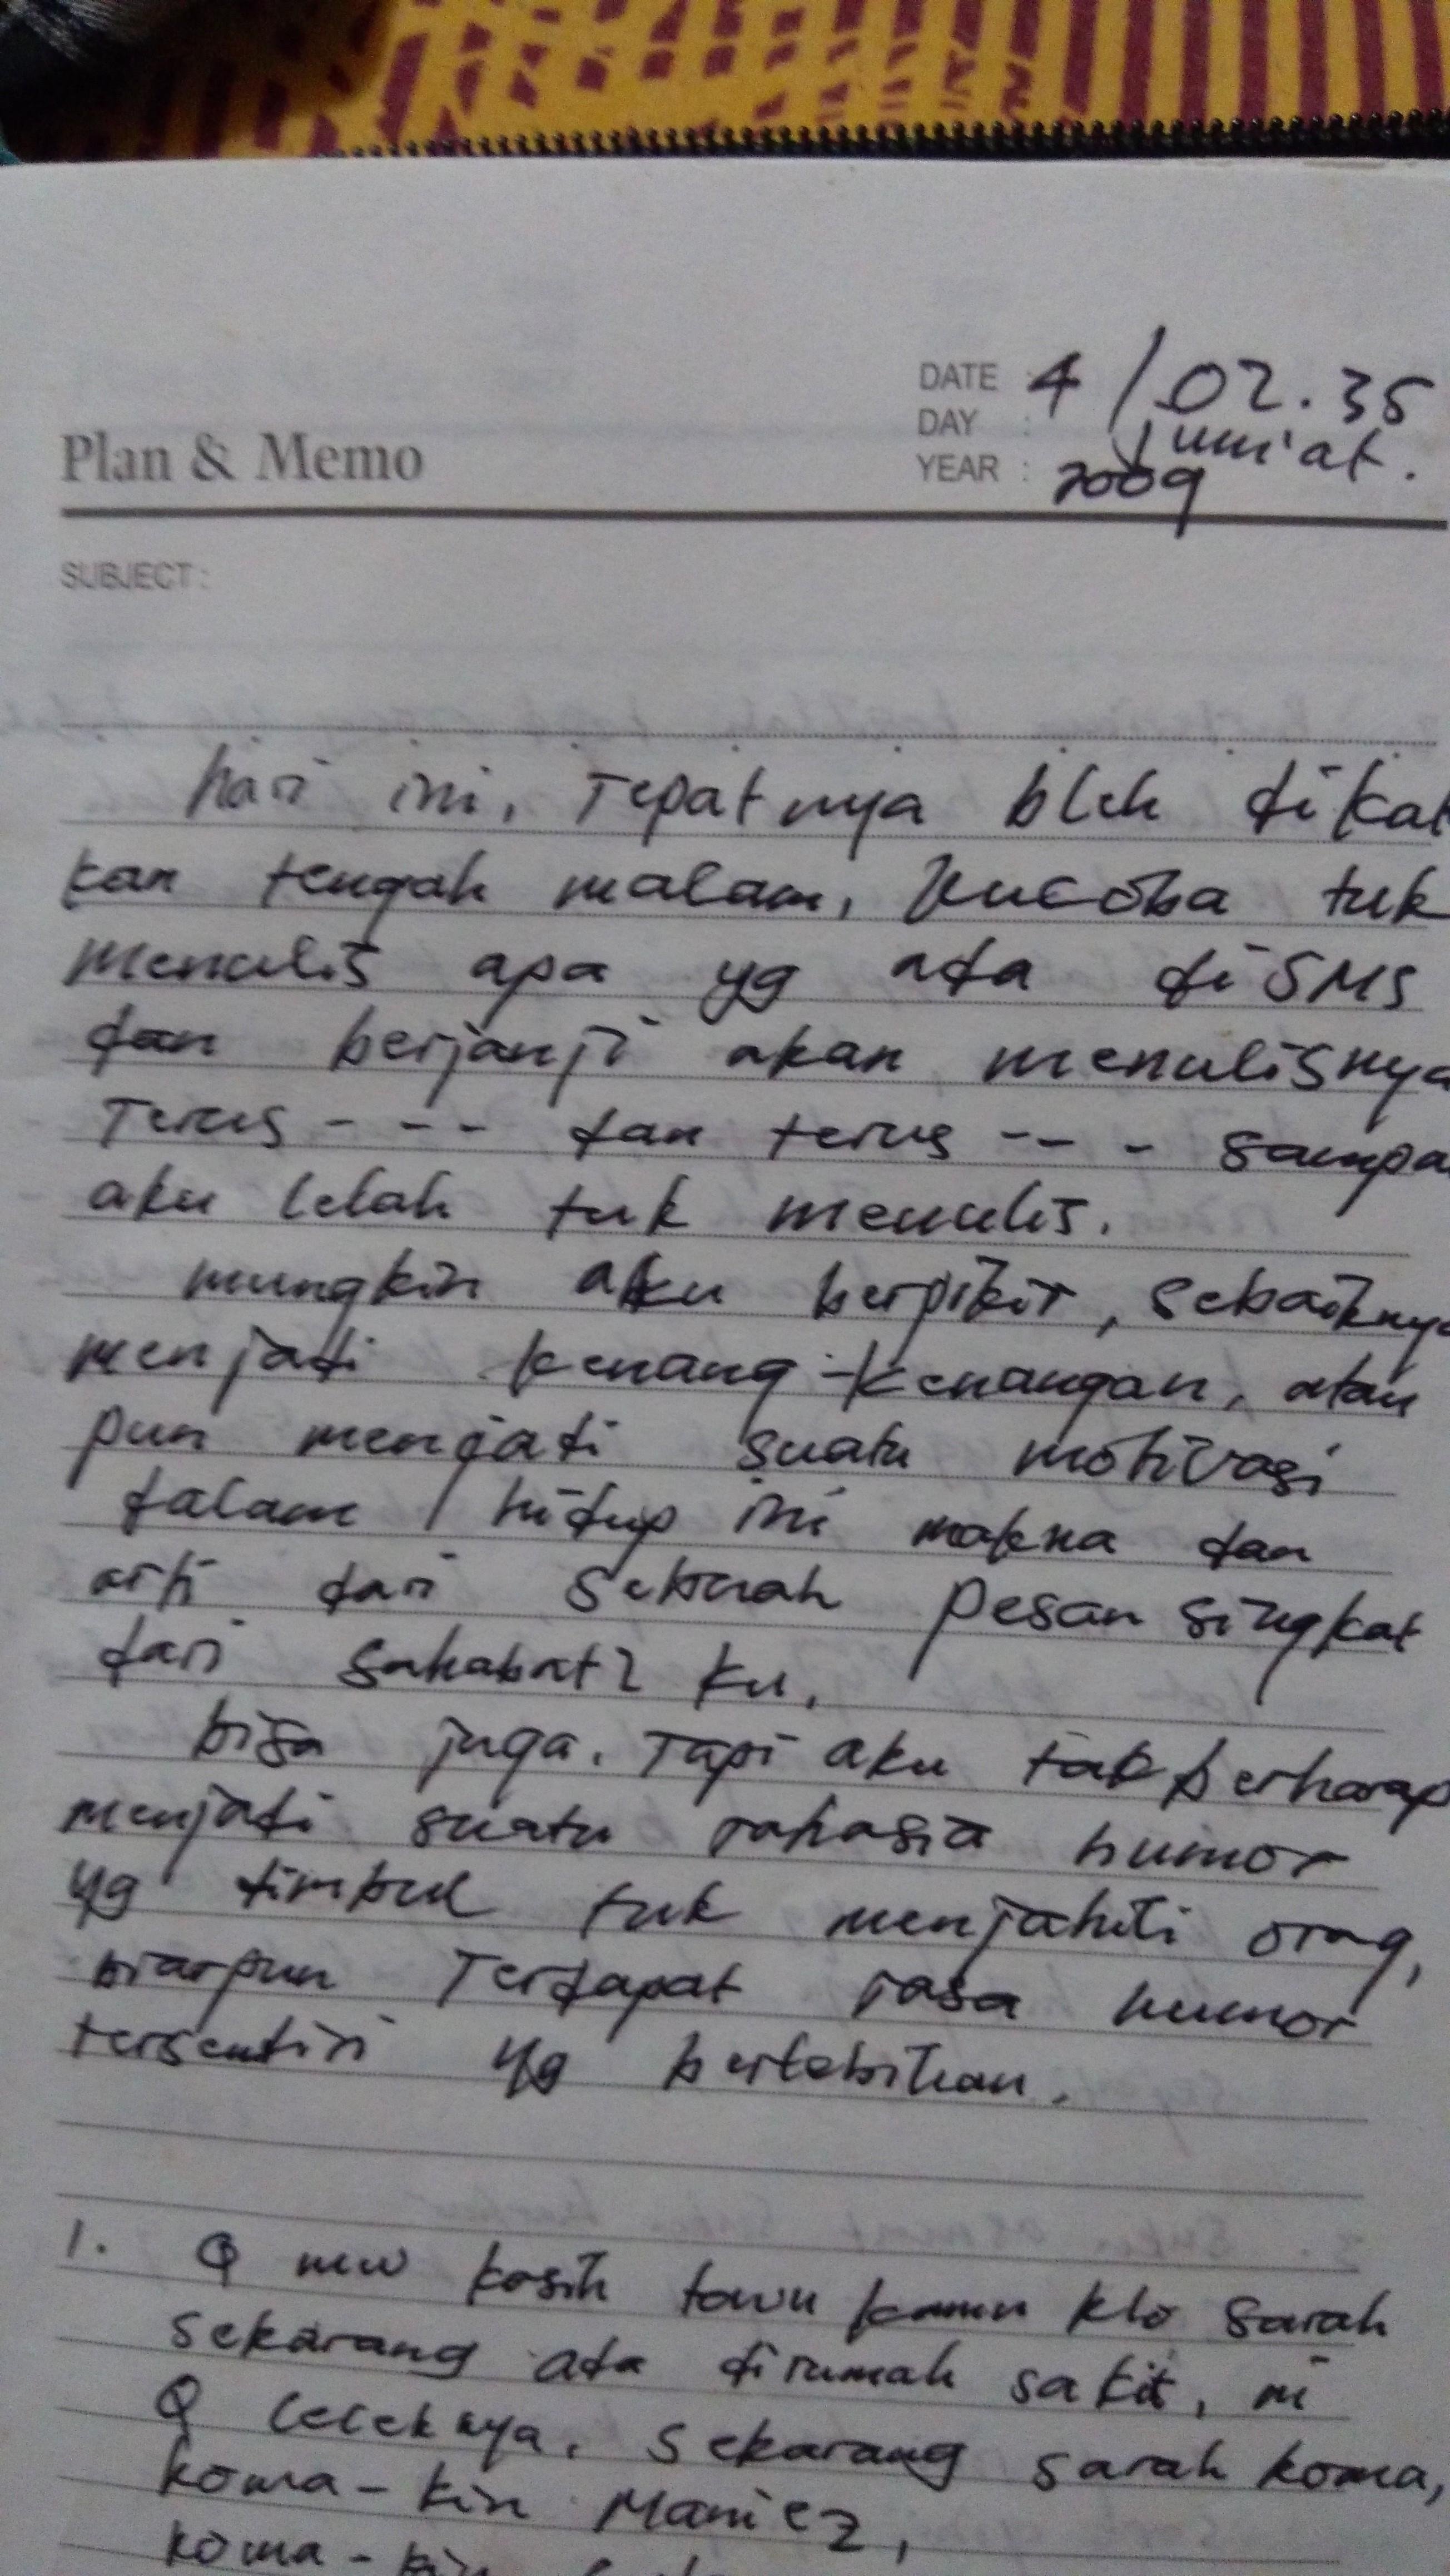 DATE : 4 / 02.35
DAY : Jum'at.
Plan & Memo
YEAR : 2009
SUBJECT :
hari ini, Tepatnya bleh dikat
kan tengah malam, Kucoba tuk
menulis apa yg ada di SMS
dan berjanji akan menulisnya
Terus - - - dan terus - - - sampa
aku lelah tuk menulis.
mungkin aku berpikir, sebaiknya
menjadi kenang-kenangan, atau
pun menjadi suatu motivasi
dalam hidup ini makna dan
arti dari sebuah pesan singkat
dari sahabat2 ku.
bisa juga. Tapi aku tak berharap
menjadi suatu rahasia humor
yg timbul tuk menjahili orng,
biarpun Terdapat rasa humor
tersendiri yg berlebihan.
1. Q mw kasih tawu kamu klo sarah
sekarang ada dirumah sakit, ni
Q ceceknya. Sekarang sarah koma,
koma-kin Maniez,
koma-kin